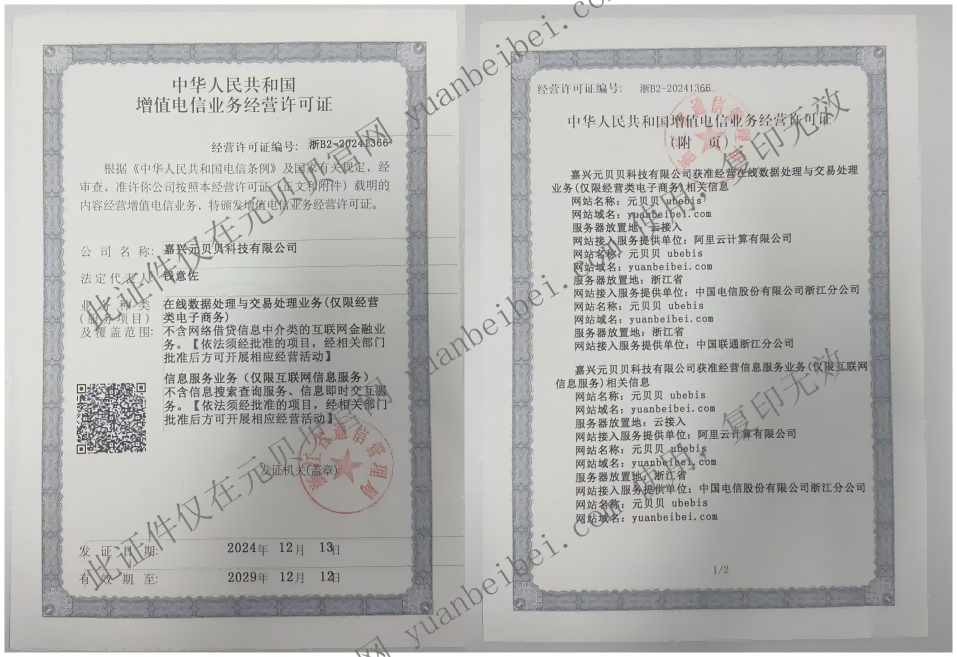 中华人民共和国
增值电信业务经营许可证
经营许可证编号: 浙B2-20241366
根据《中华人民共和国电信条例》及国家有关规定,经
审查,准许你公司按照本经营许可证(正文和附件)载明的
内容经营增值电信业务、特颁发增值电信业务经营许可证。
公司名称: 嘉兴元贝贝科技有限公司
法定代表人 钱意佐
业务种类
(服务项目)
及覆盖范围:
在线数据处理与交易处理业务(仅限经营
类电子商务)
不含网络借贷信息中介类的互联网金融业
务。【依法须经批准的项目,经相关部门
批准后方可开展相应经营活动】
信息服务业务(仅限互联网信息服务)
不含信息搜索查询服务、信息即时交互服
务。【依法须经批准的项目,经相关部门
批准后方可开展相应经营活动】
发证机关(盖章):
浙江省通信管理局
发证日期: 2024年 12月 13日
有效期至: 2029年 12月 12日
经营许可证编号: 浙B2-20241366
中华人民共和国增值电信业务经营许可证
(附 页)
嘉兴元贝贝科技有限公司获准经营在线数据处理与交易处理
业务(仅限经营类电子商务)相关信息
网站名称:元贝贝 ubebis
网站域名:yuanbeibei.com
服务器放置地:云接入
网站接入服务提供单位:阿里云计算有限公司
网站名称:元贝贝 ubebis
网站域名:yuanbeibei.com
服务器放置地:浙江省
网站接入服务提供单位:中国电信股份有限公司浙江分公司
网站名称:元贝贝 ubebis
网站域名:yuanbeibei.com
服务器放置地:浙江省
网站接入服务提供单位:中国联通浙江分公司
嘉兴元贝贝科技有限公司获准经营信息服务业务(仅限互联网
信息服务)相关信息
网站名称:元贝贝 ubebis
网站域名:yuanbeibei.com
服务器放置地:云接入
网站接入服务提供单位:阿里云计算有限公司
网站名称:元贝贝 ubebis
网站域名:yuanbeibei.com
服务器放置地:浙江省
网站接入服务提供单位:中国电信股份有限公司浙江分公司
网站名称:元贝贝 ubebis
网站域名:yuanbeibei.com
1/2
此证件仅在元贝贝官网 yuanbeibei.com 使用,复印无效
此证件仅在元贝贝官网 yuanbeibei.com 使用,复印无效
网 yuanbeibei.com